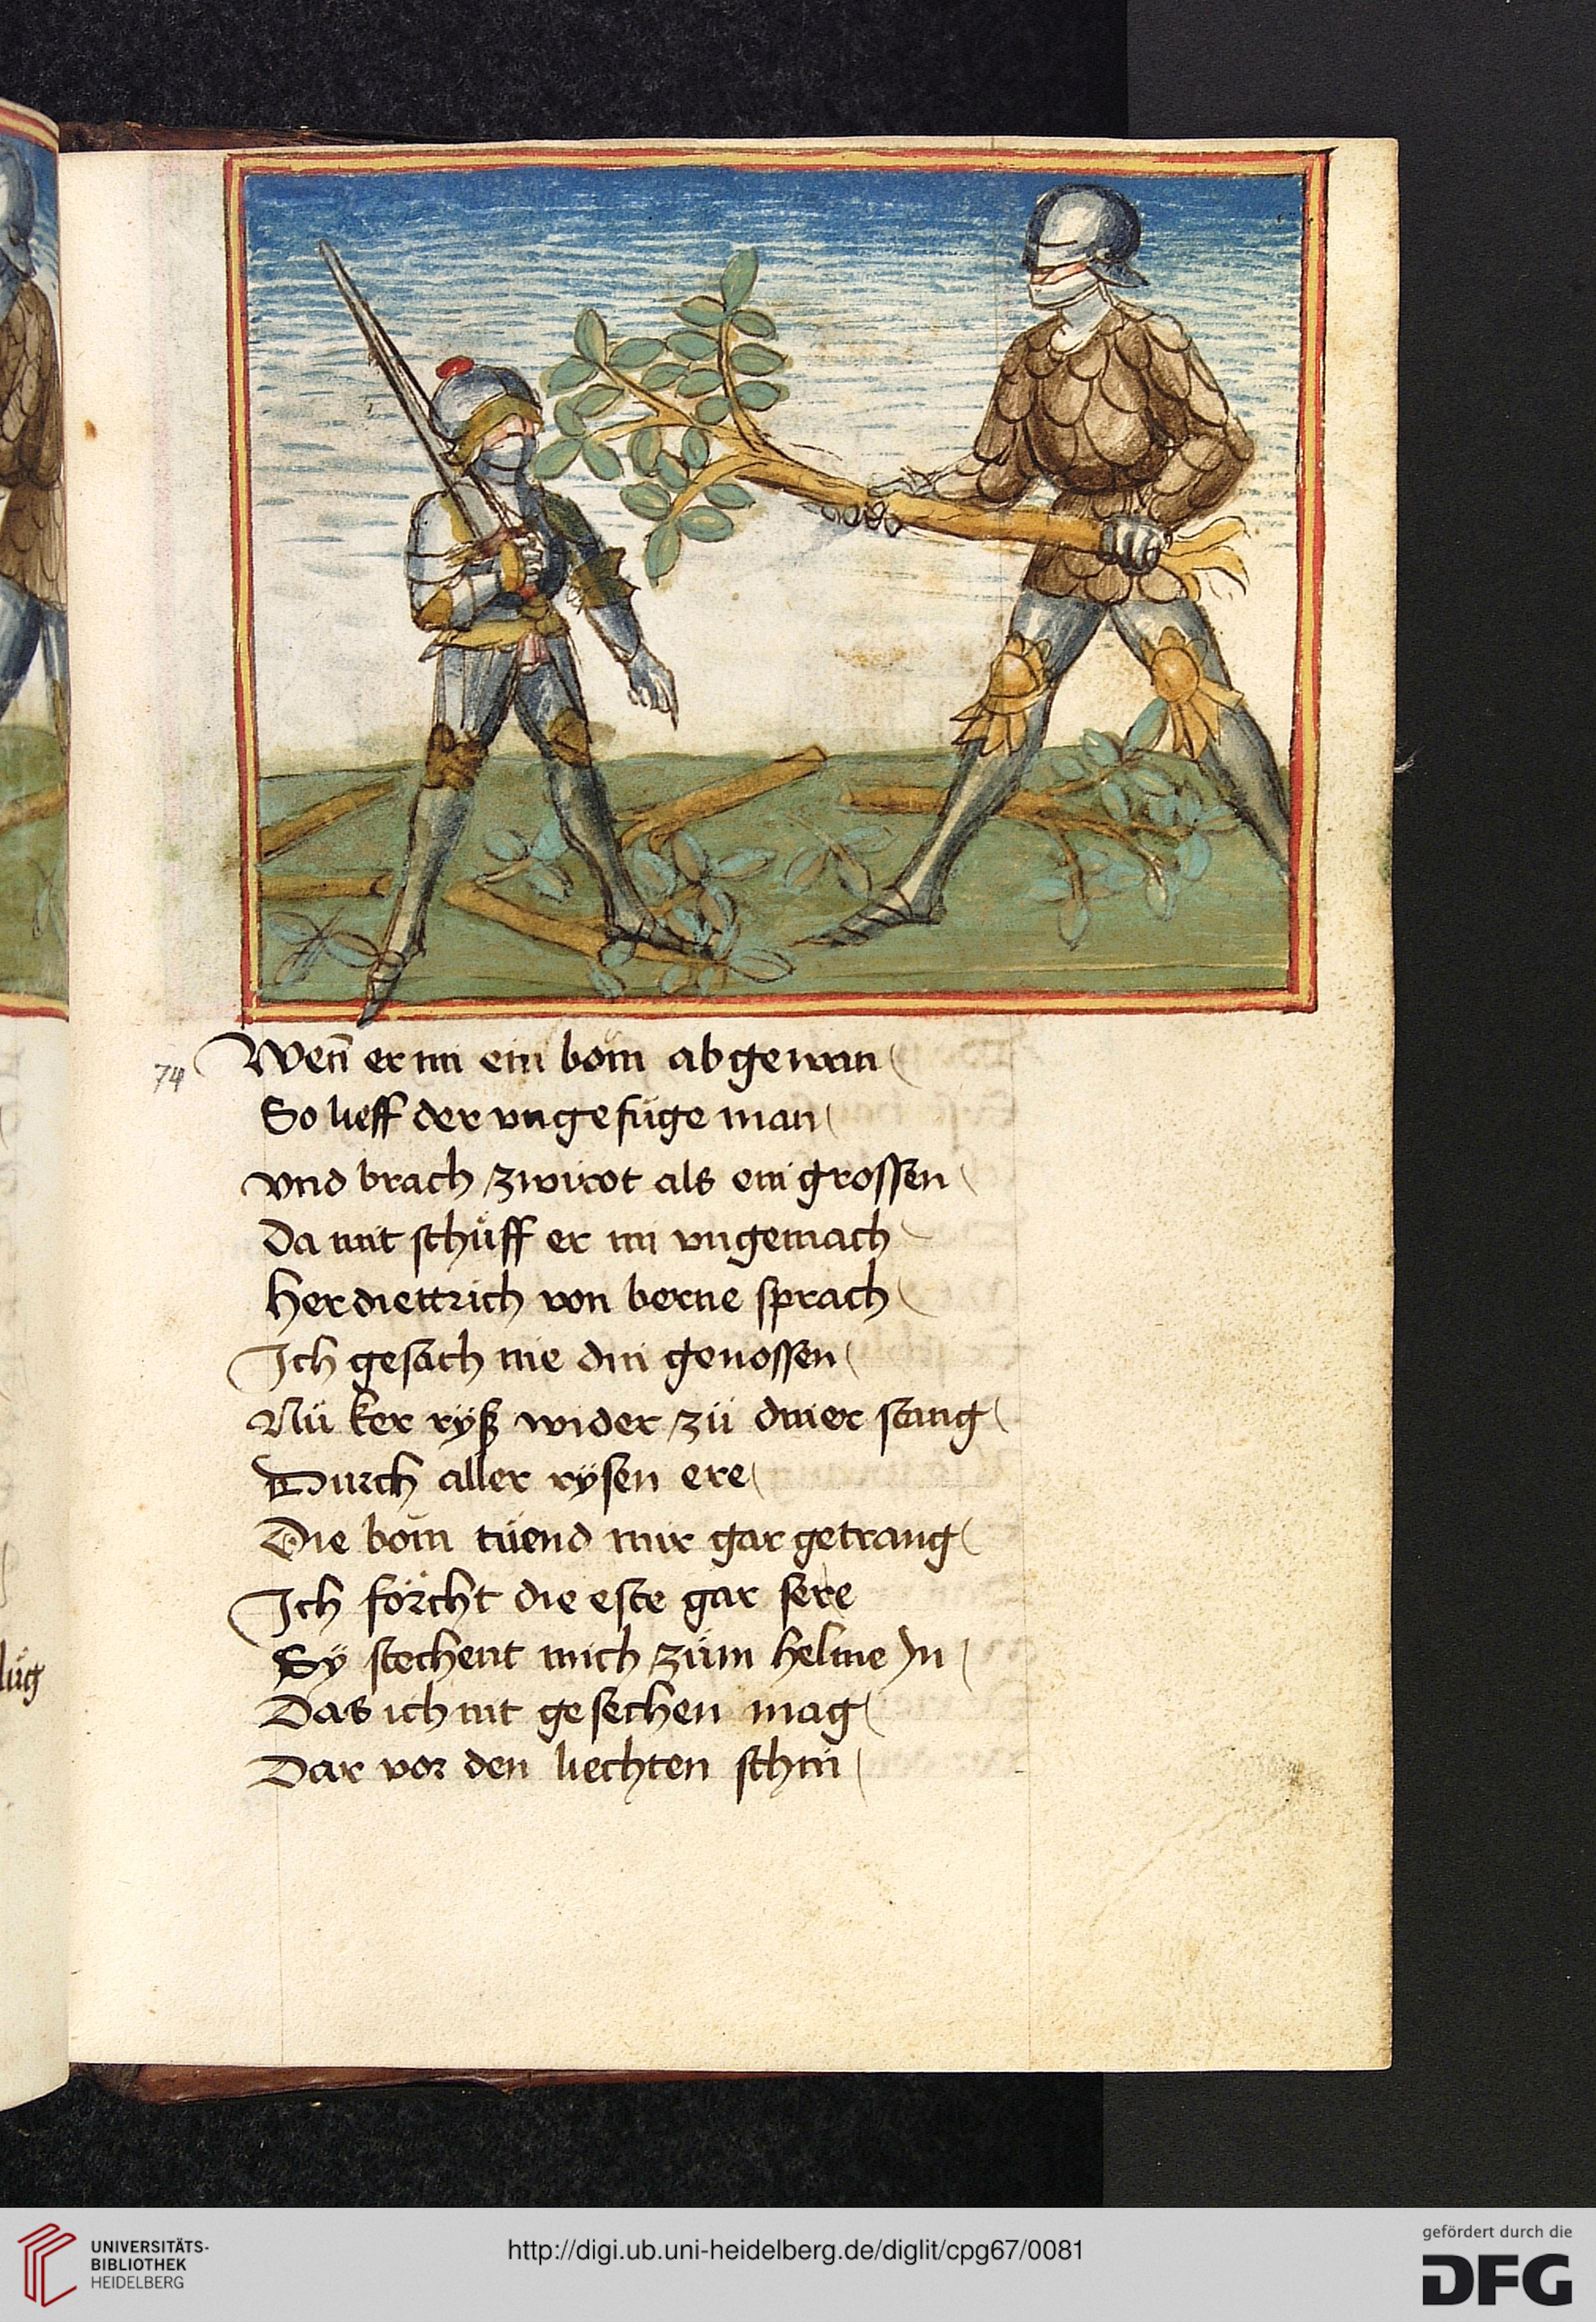 74
Wen̄ er im ein bom̄ ab gewan
So lieff der vngefüge man
vnd brach zwirot als ein grossen
Da mit schüff er im vngemach
Her diettrich von berne sprach
Ich gesach nie din genossen
Nü ker ryß wider zü diner stang
Durch aller rÿsen ere
Die bom̄ tüend mir gar getrang
Ich förcht die este gar sere
Sÿ stechent mich züm helme In
Das ich nit gesechen mag
Dar vor den liechten schin
lüg
UNIVERSITÄTS-
BIBLIOTHEK
HEIDELBERG
http://digi.ub.uni-heidelberg.de/diglit/cpg67/0081
gefördert durch die
DFG